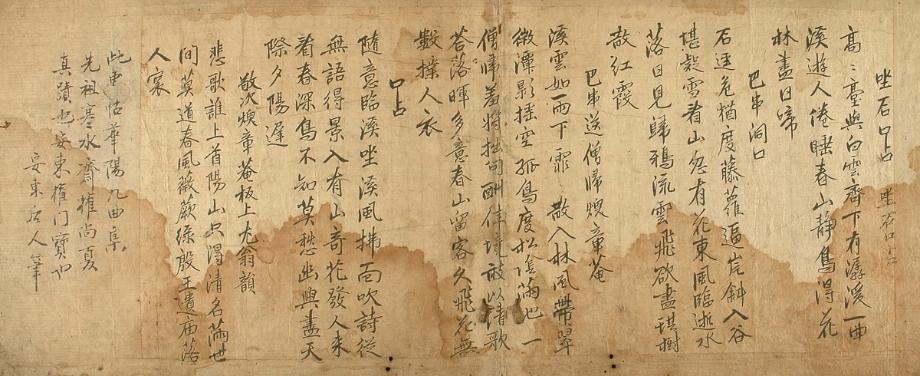 坐石口占
高〻臺與白雲齊下有潺溪一曲
溪遊人倦睡春山靜鳥得花
林盡日啼
巴串洞口
石逕危橋度藤蘿逼岸斜入谷
堪設雲看山忽有花東風臨逝水
落日見歸鴉流雲飛欲盡琪樹
敲紅霞
巴串送僧歸煥章菴
溪雲如雨下霏〻散入林風帶翠
微潭影搖空孤鳥度松陰滿地一
僧歸羞將拙句酬佳境敢以淸歌
答落暉多意春山留客久飛花無
數撲人衣
口占
隨意臨溪坐溪風拂面吹詩從
無語得景入有山奇花發人來
看春深鳥不知莫愁幽興盡天
際夕陽遲
敬次煥章菴板上尤翁韻
悲歌誰上首陽山只得淸名滿世
間莫道春風薇蕨綠殷王遺廟落
人寰
此軸怙華陽九曲集
先祖寒水齋權尙夏
眞蹟也安東權門寶也
安東后人筆